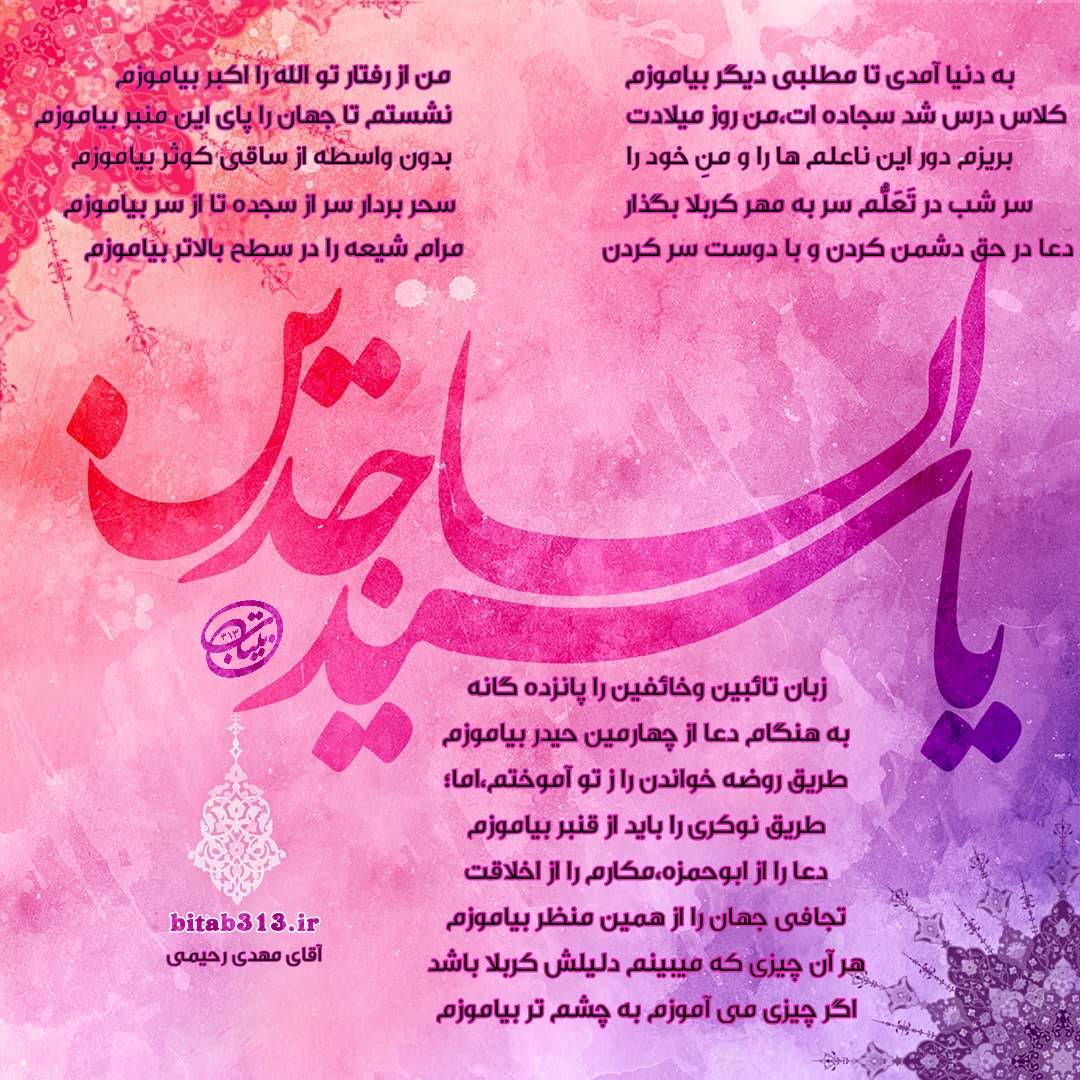 به دنیا آمدی تا مطلبی دیگر بیاموزم
من از رفتار تو الله را اکبر بیاموزم
کلاس درس شد سجاده ات،من روز میلادت
نشستم تا جهان را پای این منبر بیاموزم
بریزم دور این ناعلم ها را و منِ خود را
بدون واسطه از ساقی کوثر بیاموزم
سر شب در تَعَلُّم سر به مهر کربلا بگذار
سحر بردار سر از سجده تا از سر بیاموزم
دعا در حق دشمن کردن و با دوست سر کردن
مرام شیعه را در سطح بالاتر بیاموزم
یا سیدالساجدین
بیتاب ۳۱۳
زبان تائبین وخائفین را پانزده گانه
به هنگام دعا از چهارمین حیدر بیاموزم
طریق روضه خواندن را ز تو آموختم،اما؛
طریق نوکری را باید از قنبر بیاموزم
دعا را از ابوحمزه،مکارم را از اخلاقت
تجافی جهان را از همین منظر بیاموزم
هر آن چیزی که میبینم دلیلش کربلا باشد
اگر چیزی می آموزم به چشم تر بیاموزم
bitab313.ir
آقای مهدی رحیمی